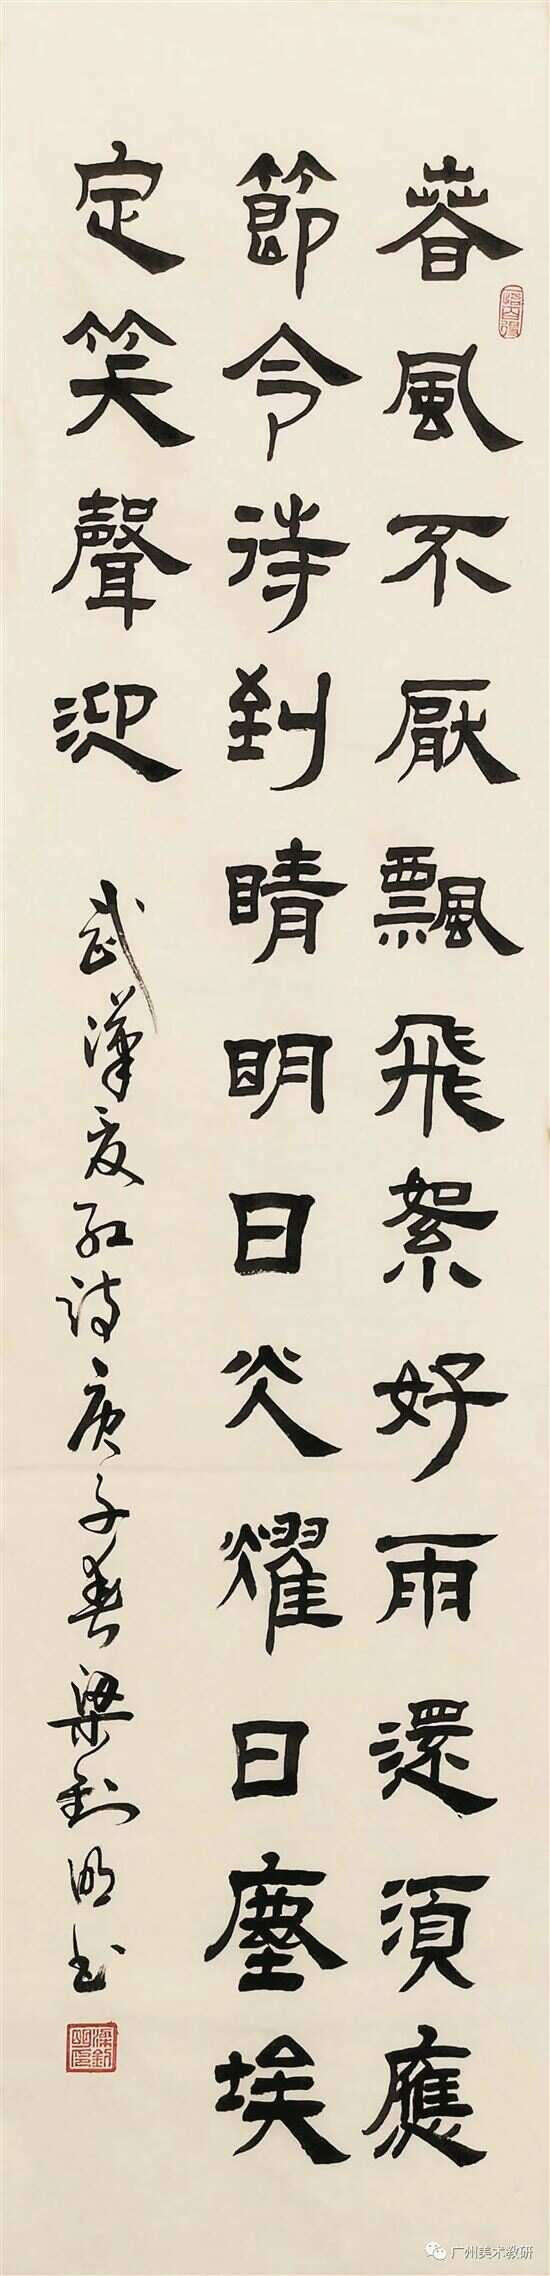 春風不厭飄飛絮好雨還須應
節令待到晴明日炎耀日塵埃
定笑聲迎
武漢友紅詩庚子春梁釗明書
广州美术教研